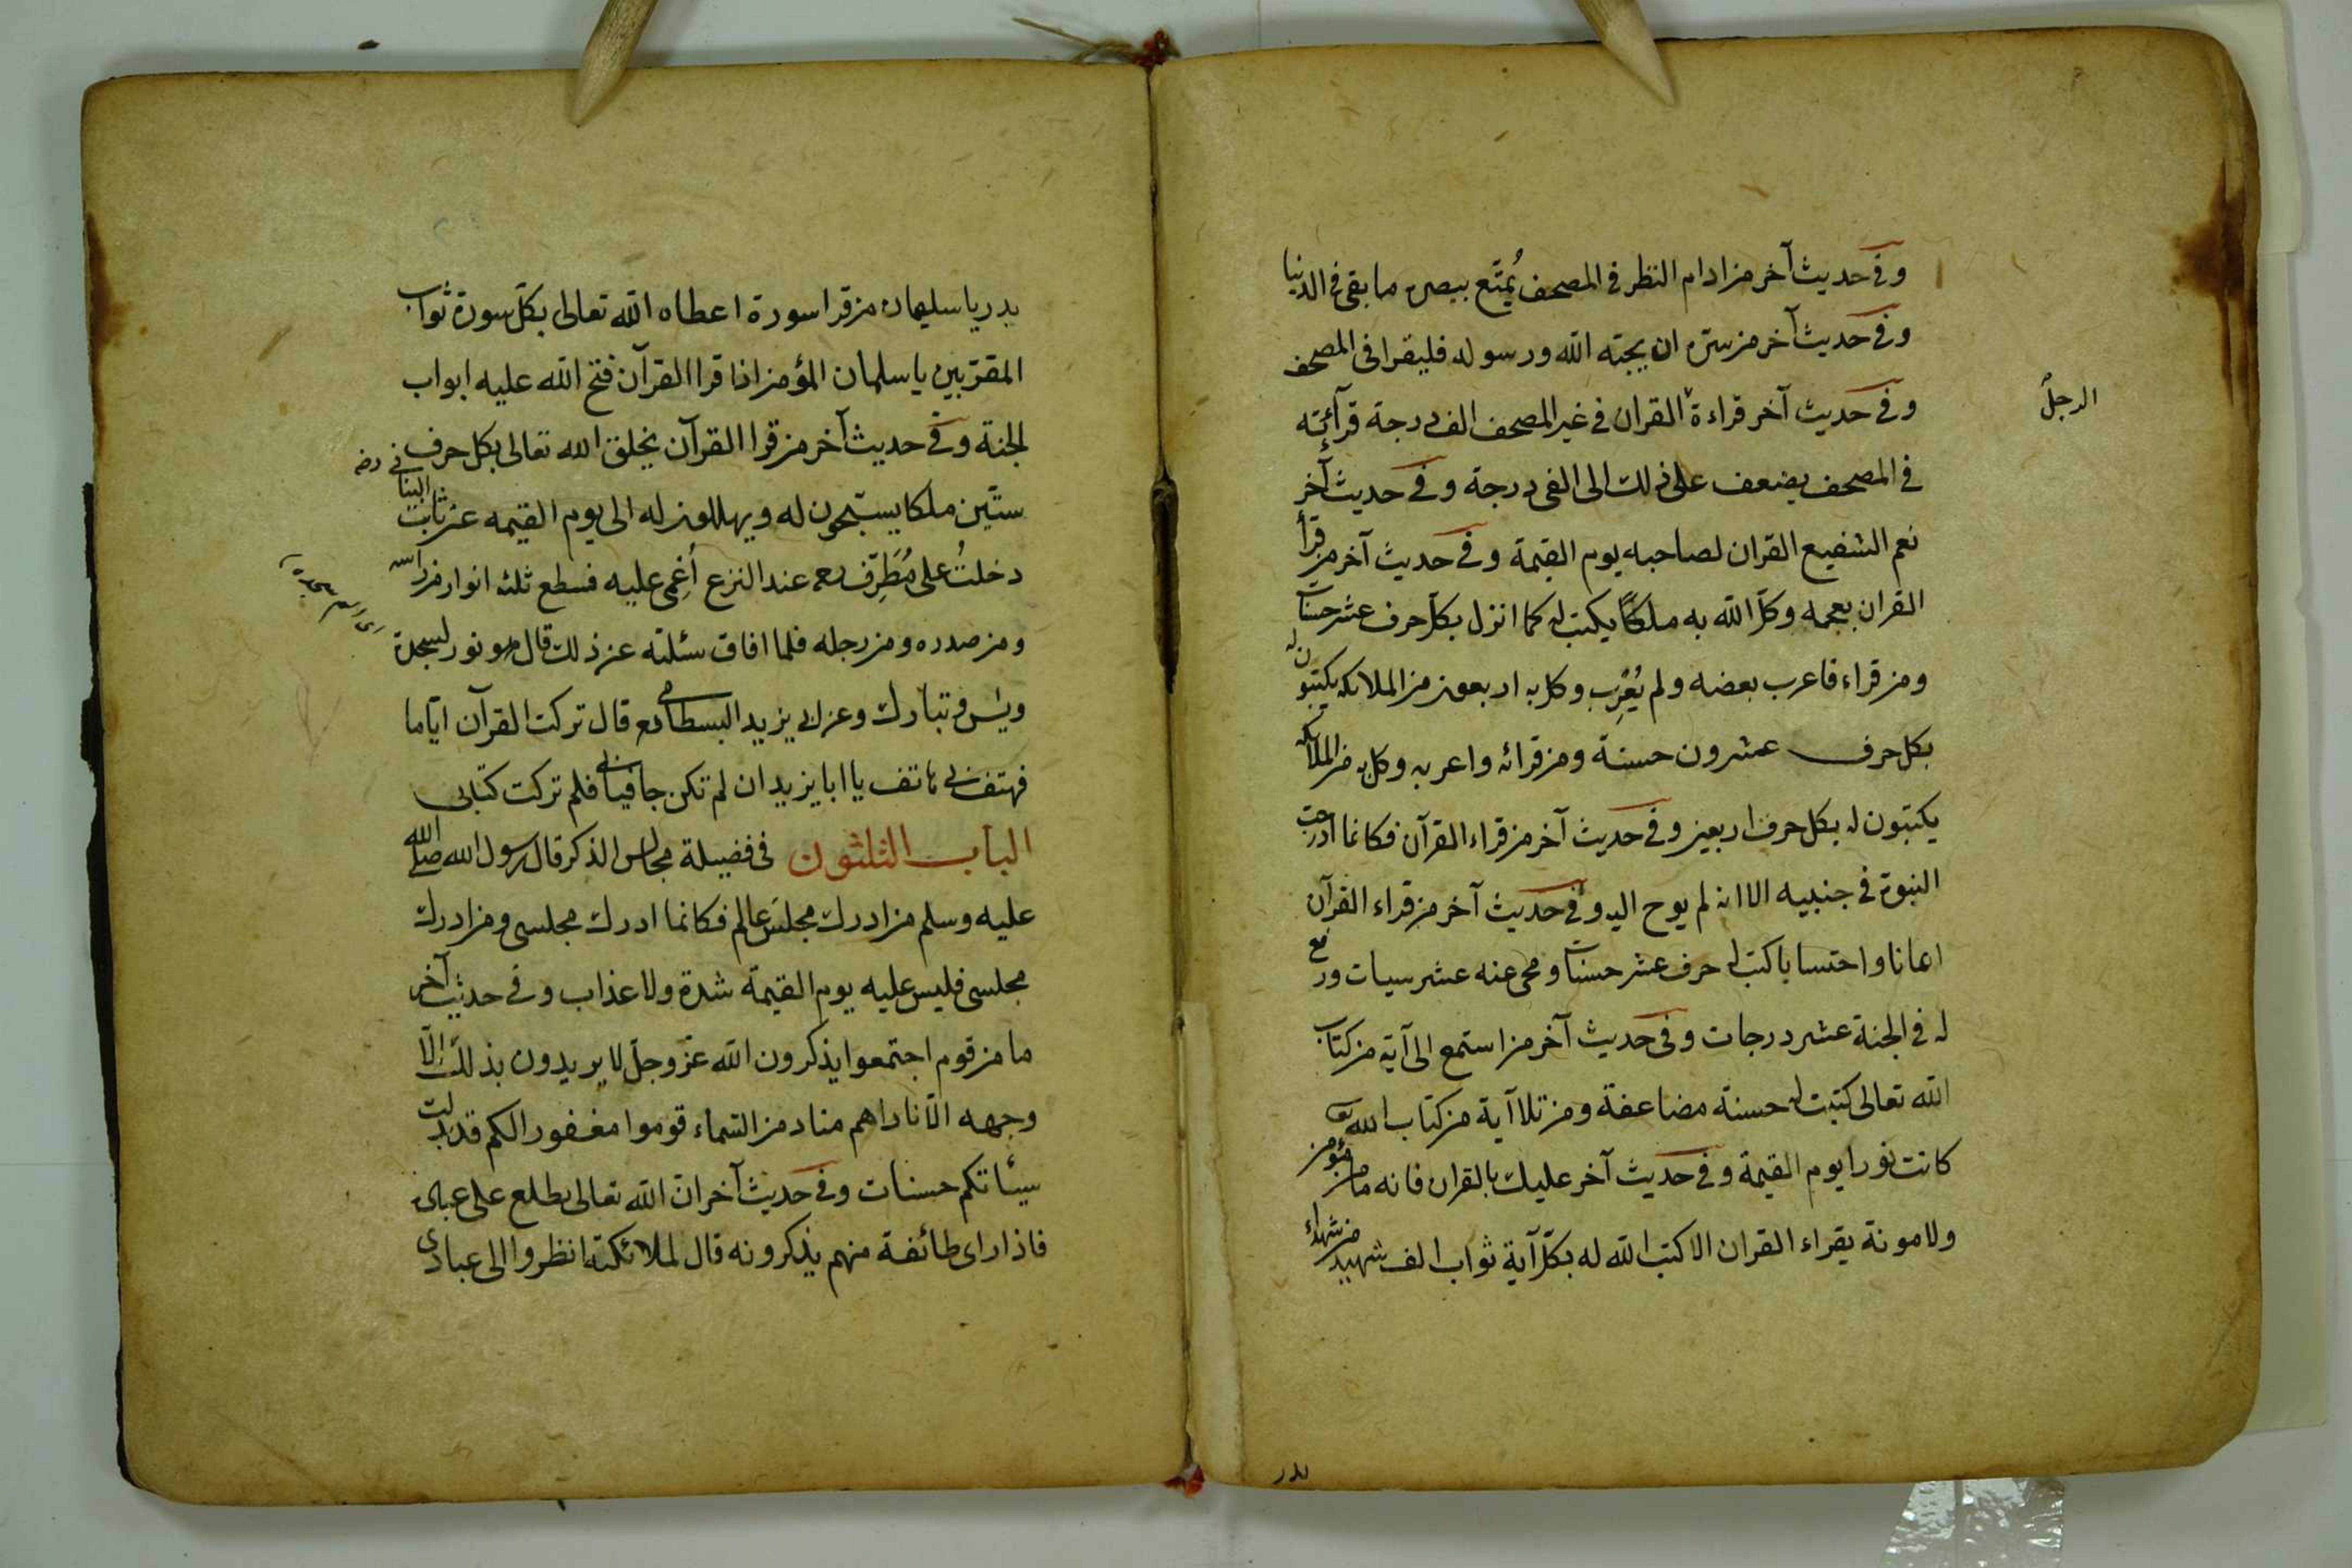 وفى حديث آخر من ادام النظر فى المصحف يُمتّع ببصره ما بقى فى الدنيا
وفى حديث آخر من سرّه ان يحبّه الله ورسوله فليقرا فى المصحف
وفى حديث آخر قراءة القران فى غير المصحف الف درجة قرآئته
الرجل
فى المصحف يضعف على ذلك الى الفى درجة وفى حديث آخر
نعم الشفيع القران لصاحبه يوم القيمة وفى حديث آخر من قرأ
القران بعجمه وكلّ الله به ملكًا يكتب له كما انزل بكل حرف عشر حسنات
ومن قراء فاعرب بعضه ولم يُعْرِب وكل به اربعون من الملائكه يكتبون له
بكل حرف عشرون حسنة ومن قرائه واعربه وكل به من الملائكه
يكتبون له بكل حرف اربعين وفى حديث آخر من قراء القرآن فكانما ادرجت
النبوة فى جنبيه الا انه لم يوح اليه وفى حديث آخر من قراء القرآن
ايمانا واحتسابا كتب له حرف عشر حسنات ومحى عنه عشر سيات ورفع
له فى الجنة عشر درجات وفى حديث آخر من استمع الى آية من كتاب
الله تعالى كتبت له حسنة مضاعفة ومن تلا آية من كتاب الله تع
كانت نورا يوم القيمة وفى حديث آخر عليك بالقران فانه ما من مؤمن
ولا مونة يقراء القران الا كتب الله له بكلّ آية ثواب الف شهيد من شهداء
بدر
بدر يا سليمان من قرا سورة اعطاه الله تعالى بكلّ سورة ثواب
المقرّبين يا سلمان المؤمن اذا قرا القرآن فتح الله عليه ابواب
الجنة وفى حديث آخر من قرا القرآن يخلق الله تعالى بكل حرف
ستّين ملكا يسبّحون له ويهللون له الى يوم القيمه عن ثابت البنانى رضه
دخلتُ على مُطَرِّف رحمه عند النزع أُغِمى عليه فسطع ثلثه انوار من راسه
ومن صدره ومن رجله فلما افاق سئلته عن ذلك قال هو نور لسجدة
ويس وتبارك وعن ابى يزيد البسطامى رحمه قال تركت القرآن ايّاما
فهتف بى هاتف يا ابا يزيد ان لم تكن جافيا بى فلم تركت كتابى
الباب الثلثون فى فضيلة مجالس الذكر قال رسول الله صلى الله
عليه وسلم من ادرك مجلسَ عالم فكانما ادرك مجلسى ومن ادرك
مجلسى فليس عليه يوم القيمة شدة ولا عذاب وفى حديث آخر
ما من قوم اجتمعوا يذكرون الله عزّ وجلّ لا يريدون بذلك الّا
وجهه الّا ناداهم مناد من السّماء قوموا مغفورا لكم قد بدلت
سيئاتكم حسنات وفى حديث آخر انّ الله تعالى يطلع على عباده
فاذا راى طائفة منهم يذكرونه قال لملائكته انظروا الى عبادى